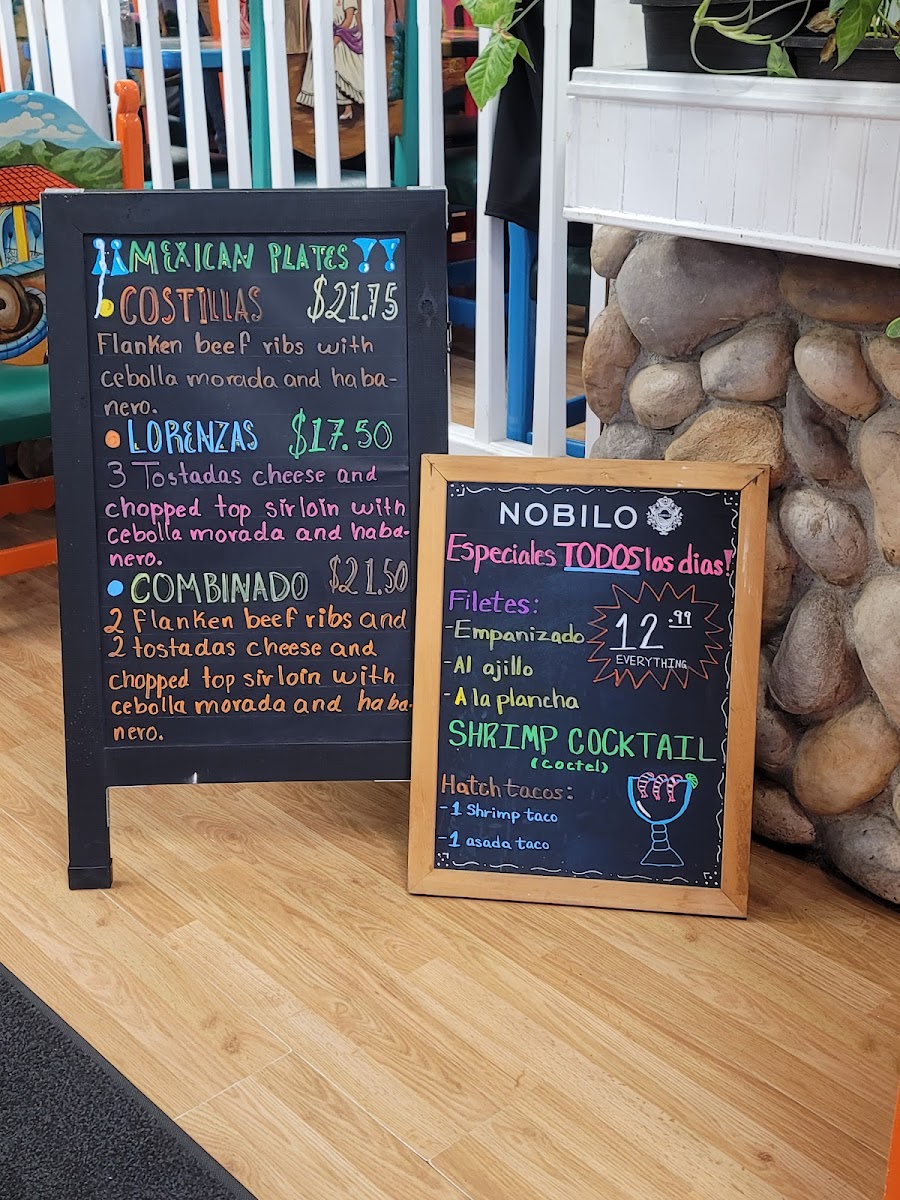 ¡¡MEXICAN PLATES!!
COSTILLAS $21.75
Flanken beef ribs with
cebolla morada and haba-
nero.
LORENZAS $17.50
3 Tostadas cheese and
chopped top sirloin with
cebolla morada and haba-
nero.
COMBINADO $21.50
2 Flanken beef ribs and
2 tostadas cheese and
chopped top sirloin with
cebolla morada and haba-
nero.
NOBILO
Especiales TODOS los dias!
Filetes:
-Empanizado
-Al ajillo
-A la plancha
12.99
EVERYTHING
SHRIMP COCKTAIL
(coctel)
Hatch tacos:
-1 Shrimp taco
-1 asada taco